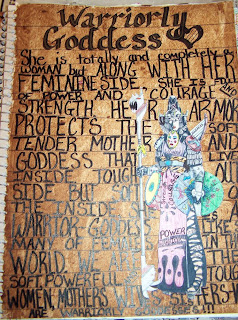 Warriorly
Goddess
She is totally and completely a
WOMAN but ALONG WITH HER
FEMININE SIDE SHE IS FULL
OF POWER AND COURAGE AND
STRENGTH HER ARMOR
PROTECTS THE SOFT
TENDER MOTHER AND
GODDESS THAT LIVE
INSIDE TOUGH OUT
SIDE BUT SOFT
THE INSIDE
WARRIOR GODDESS
MANY OF FEMALES IN
WORLD. WE ARE THE
SOFT, POWERFUL TOUGH
WOMEN, MOTHERS SISTERS
ARE WARRIOR
POWER